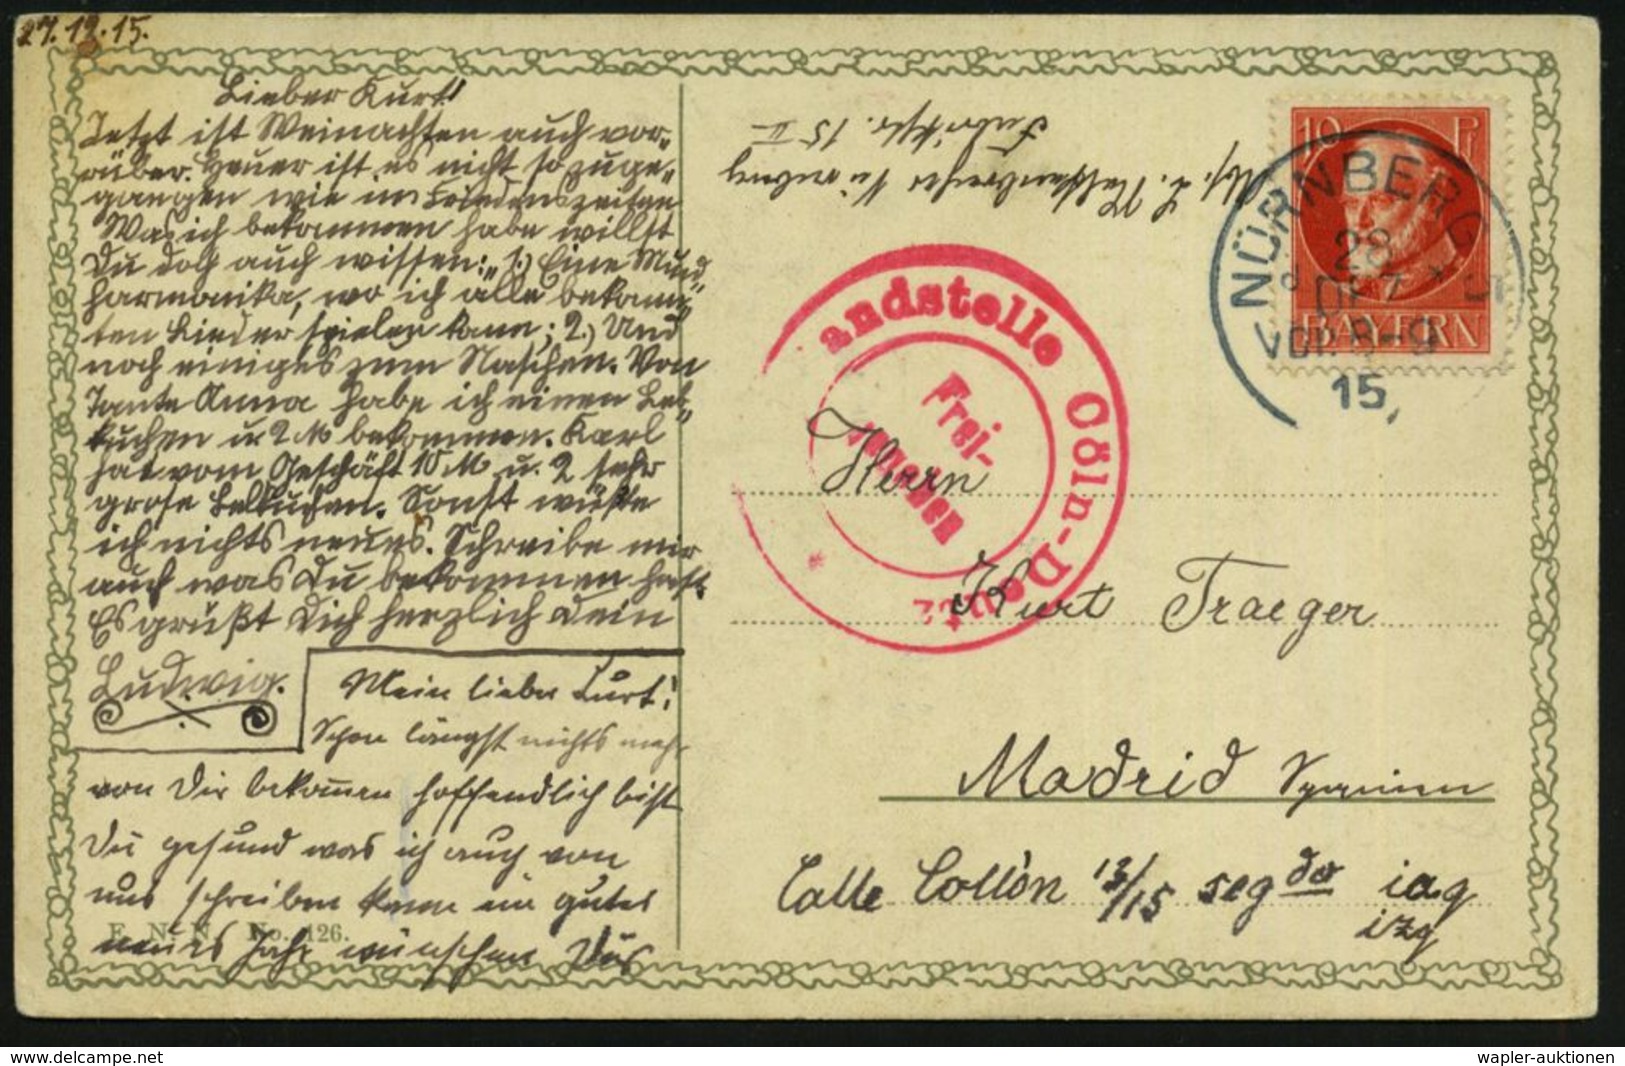 27.12.15.
Lieber Kurt!
Jetzt ist Weinachten auch vor-
rüber. Heuer ist es nicht so zuge-
gangen wie im Friedenszeiten
Was ich bekommen habe willst
Du doch auch wissen: 1.) Eine Mund-
harmonika, wo ich alle bekann-
ten Lieder spielen kann; 2.) Und
noch einiges zum Naschen. Von
Tante Anna habe ich einen Leb-
kuchen u. 2 M bekommen. Karl
hat vom Geschäft 10 M u. 2 sehr
grose Lebkuchen. Sonst wüßte
ich nichts neues. Schreibe mir
auch was Du bekommen hast.
Es grüßt Dich herzlich Dein
Ludwig.
Mein lieber Kurt!
Schon längst nichts mehr
von Dir bekommen hoffendlich bist
Du gesund was ich auch von
uns schreiben kann ein gutes
neues Jahr wünschen Dir
E. N. N. No. 126.
Abs. L. Nürnberg
15 II
10 Pf
BAYERN
NÜRNBERG
28
DEZ
VOR. 8-9
15
andstelle Cöln-Deutz
Frei-
Herrn
Kurt Traeger
Madrid Spanien
Calle Collòn 13/15 seg do
izq